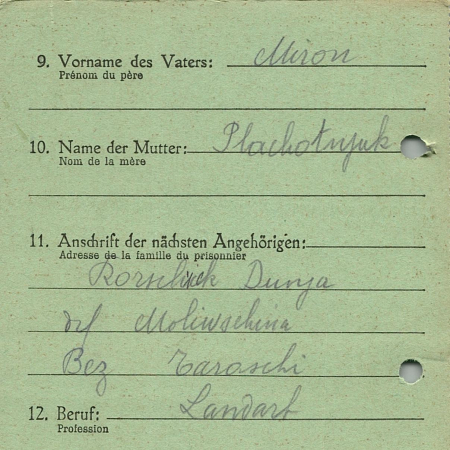 9. Vorname des Vaters: Miron
Prénom du père
10. Name der Mutter: Plachotnjuk
Nom de la mère
11. Anschrift der nächsten Angehörigen:
Adresse de la famille du prisonnier
Dunja
Moliwschina
Bez Taraschi
12. Beruf: Landarb
Profession